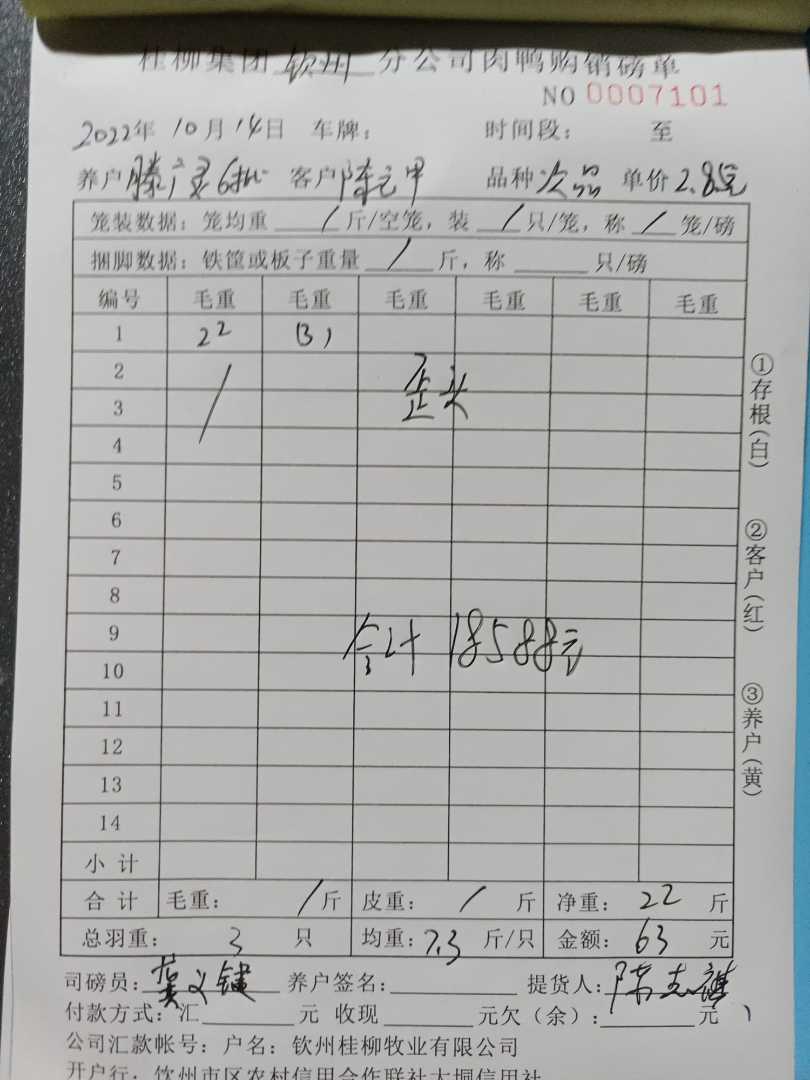 桂柳集团 钦州 分公司肉鸭购销磅单
NO 0007101
2022年 10月14日 车牌: 时间段: 至
养户 滕广灵6批 客户 陈元甲 品种 次品 单价 2.85元
笼装数据: 笼均重 / 斤/空笼, 装 / 只/笼, 称 / 笼/磅
捆脚数据: 铁筐或板子重量 / 斤, 称 只/磅
编号 毛重 毛重 毛重 毛重 毛重 毛重
1 22 (3)
2 /
3 歪头
4
5
6
7
8
9 合计 18588元
10
11
12
13
14
小计
合计 毛重: / 斤 皮重: / 斤 净重: 22 斤
总羽重: 3 只 均重: 7.3 斤/只 金额: 63 元
司磅员: 龚义键 养户签名: 提货人: 陈志祺
付款方式: 汇 元 收现 元欠(余): 元
公司汇款帐号: 户名: 钦州桂柳牧业有限公司
开户行: 钦州市区农村信用合作联社大垌信用社
①存根(白)
②客户(红)
③养户(黄)